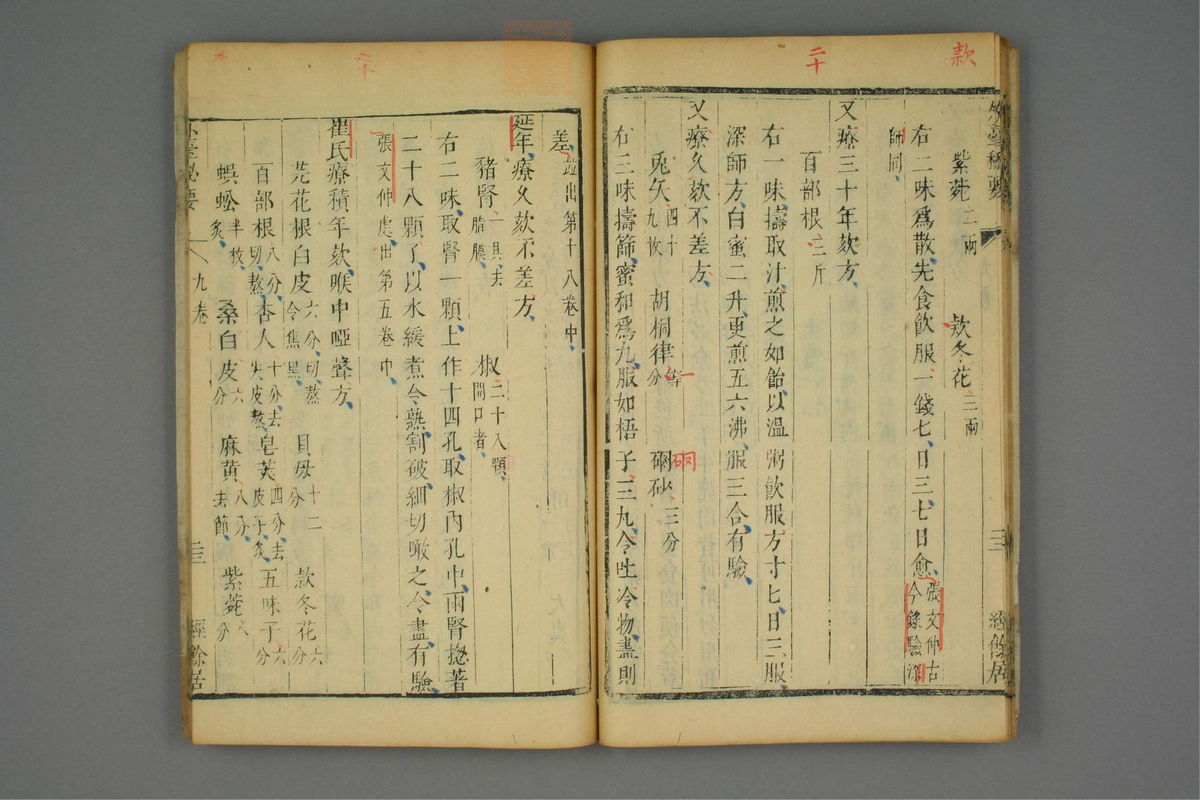 款
二十
外臺秘要
三三
經餘居
紫菀二兩 款冬花三兩
右二味為散先食飲服一錢七日三七日愈張文仲古今錄驗深
師同
又療三十年欬方
百部根二斤
右一味擣取汁煎之如飴以溫粥飲服方寸匕日三服
深師方白蜜二升更煎五六沸服三合有驗
又療久欬不差方
兎矢四十九枚 胡桐律一分等 硇砂三分
硇
右三味擣篩蜜和為丸服如梧子三丸令吐冷物盡則
二十
差並出第十八卷中
延年療久欬不差方
猪腎一具去脂膜 椒二十八顆開口者
右二味取腎一顆上作十四孔取椒內孔中兩腎摠著
二十八顆了以水緩煮令熟割破細切噉之令盡有驗
張文仲處出第五卷中
崔氏療積年欬喉中啞聲方
芫花根白皮六分切熬令焦黑 貝母十二分 款冬花六分
百部根八分切熬 杏人十分去尖皮熬 皂莢四分去皮子炙 五味子六分
蜈蚣半枚炙 桑白皮六分 麻黃八分去節 紫菀八分
外臺秘要
九卷
三三
經餘居